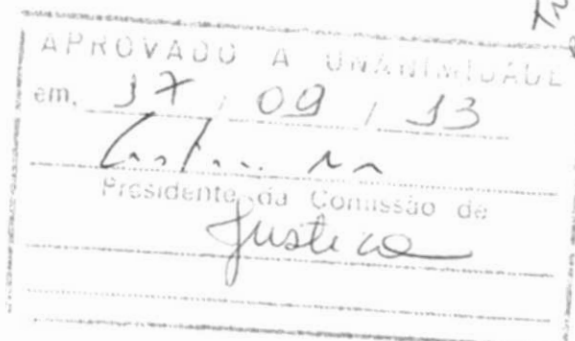 APROVADO A UNANIMIDADE
em, 17 / 09 / 13
Presidente da Comissão de
Justiça